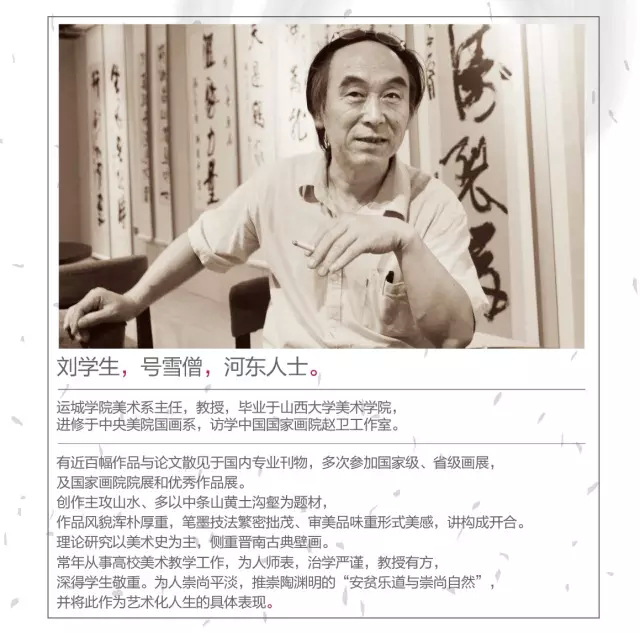 刘学生，号雪僧，河东人士。
运城学院美术系主任，教授，毕业于山西大学美术学院，
进修于中央美院国画系，访学中国国家画院赵卫工作室。
有近百幅作品与论文散见于国内专业刊物，多次参加国家级、省级画展，
及国家画院院展和优秀作品展。
创作主攻山水、多以中条山黄土沟壑为题材，
作品风貌浑朴厚重，笔墨技法繁密拙茂、审美品味重形式美感，讲构成开合。
理论研究以美术史为主，侧重晋南古典壁画。
常年从事高校美术教学工作，为人师表，治学严谨，教授有方，
深得学生敬重。为人崇尚平淡，推崇陶渊明的“安贫乐道与崇尚自然”，
并将此作为艺术化人生的具体表现。